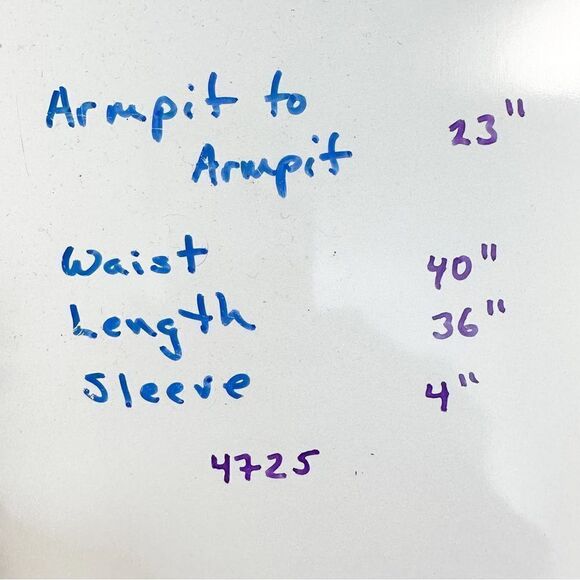 Armpit to
Armpit 23"
Waist 40"
Length 36"
Sleeve 4"
4725